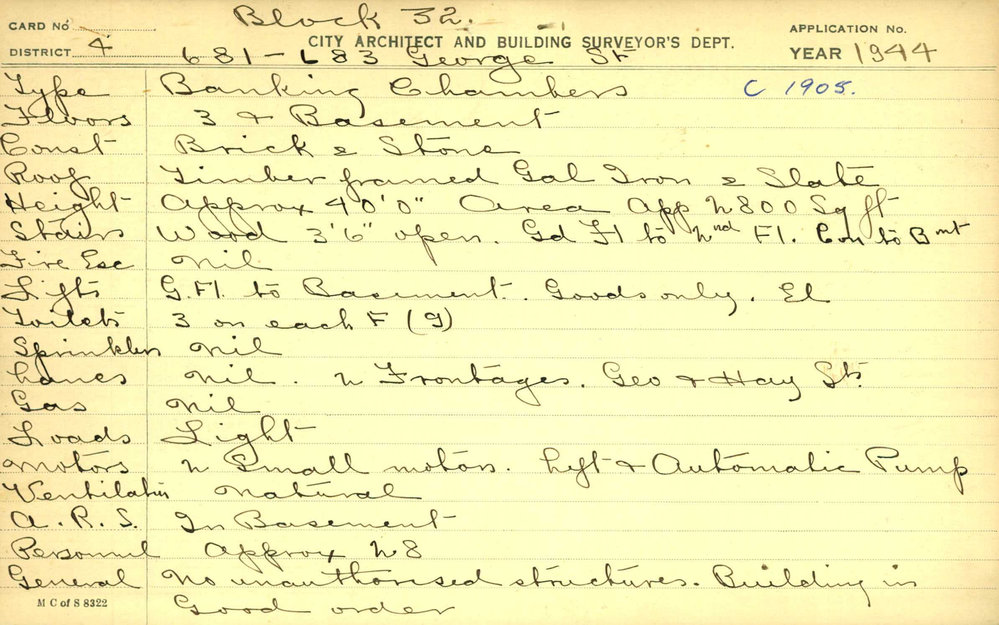 Block 32.
CARD No
CITY ARCHITECT AND BUILDING SURVEYOR'S DEPT.
APPLICATION No.
DISTRICT 4
681-683 George St
YEAR 1944
Type Banking Chambers C 1905.
Floors 3 & Basement
Const Brick & Stone
Roof Timber framed Gal Iron & Slate
Height Approx 40'0" Area App 2800 Sq ft
Stairs Wood 3'6" open. Gd Fl to 2nd Fl. Con to Bmt
Fire Esc Nil
Lifts G.Fl. to Basement. Goods only. El
Toilets 3 on each F (9)
Sprinklers Nil
Lanes Nil. 2 Frontages. Geo & Hay Sts
Gas Nil
Loads Light
Motors 2 Small motors. Lift & Automatic Pump
Ventilation Natural
A.R.S. In Basement
Personnel Approx 28
General No unauthorised structures. Building in
Good order
M C of S 8322